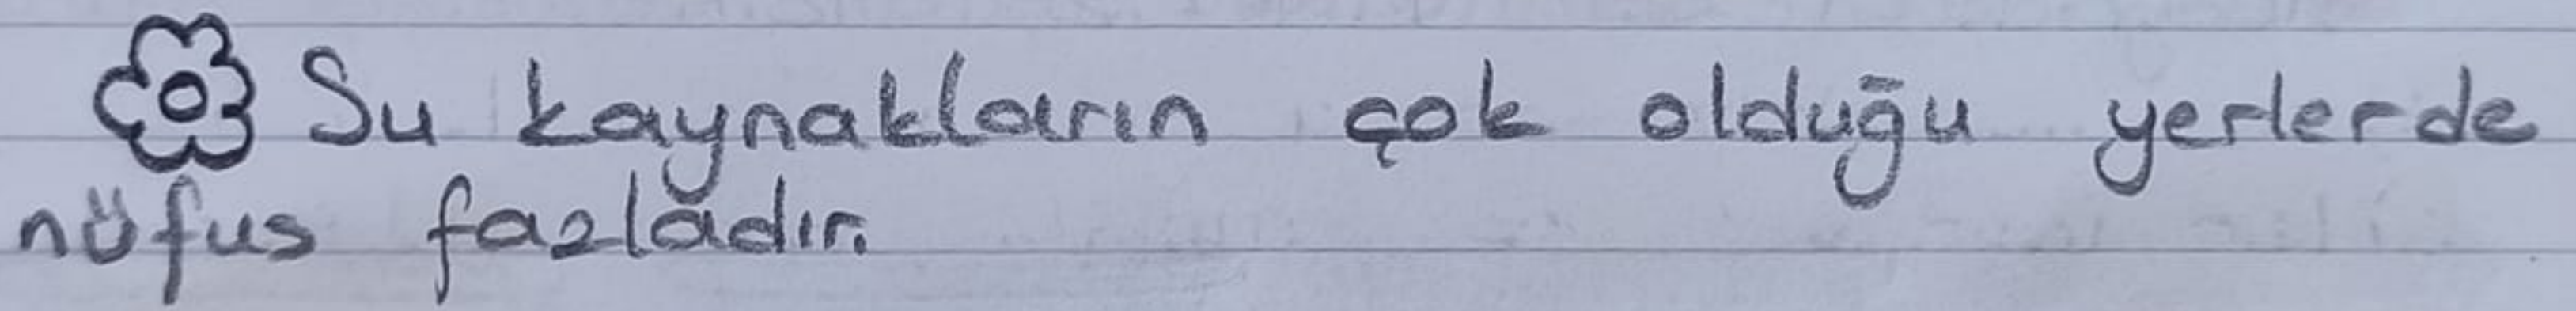 Su kaynakların çok olduğu yerlerde
nüfus fazladır.